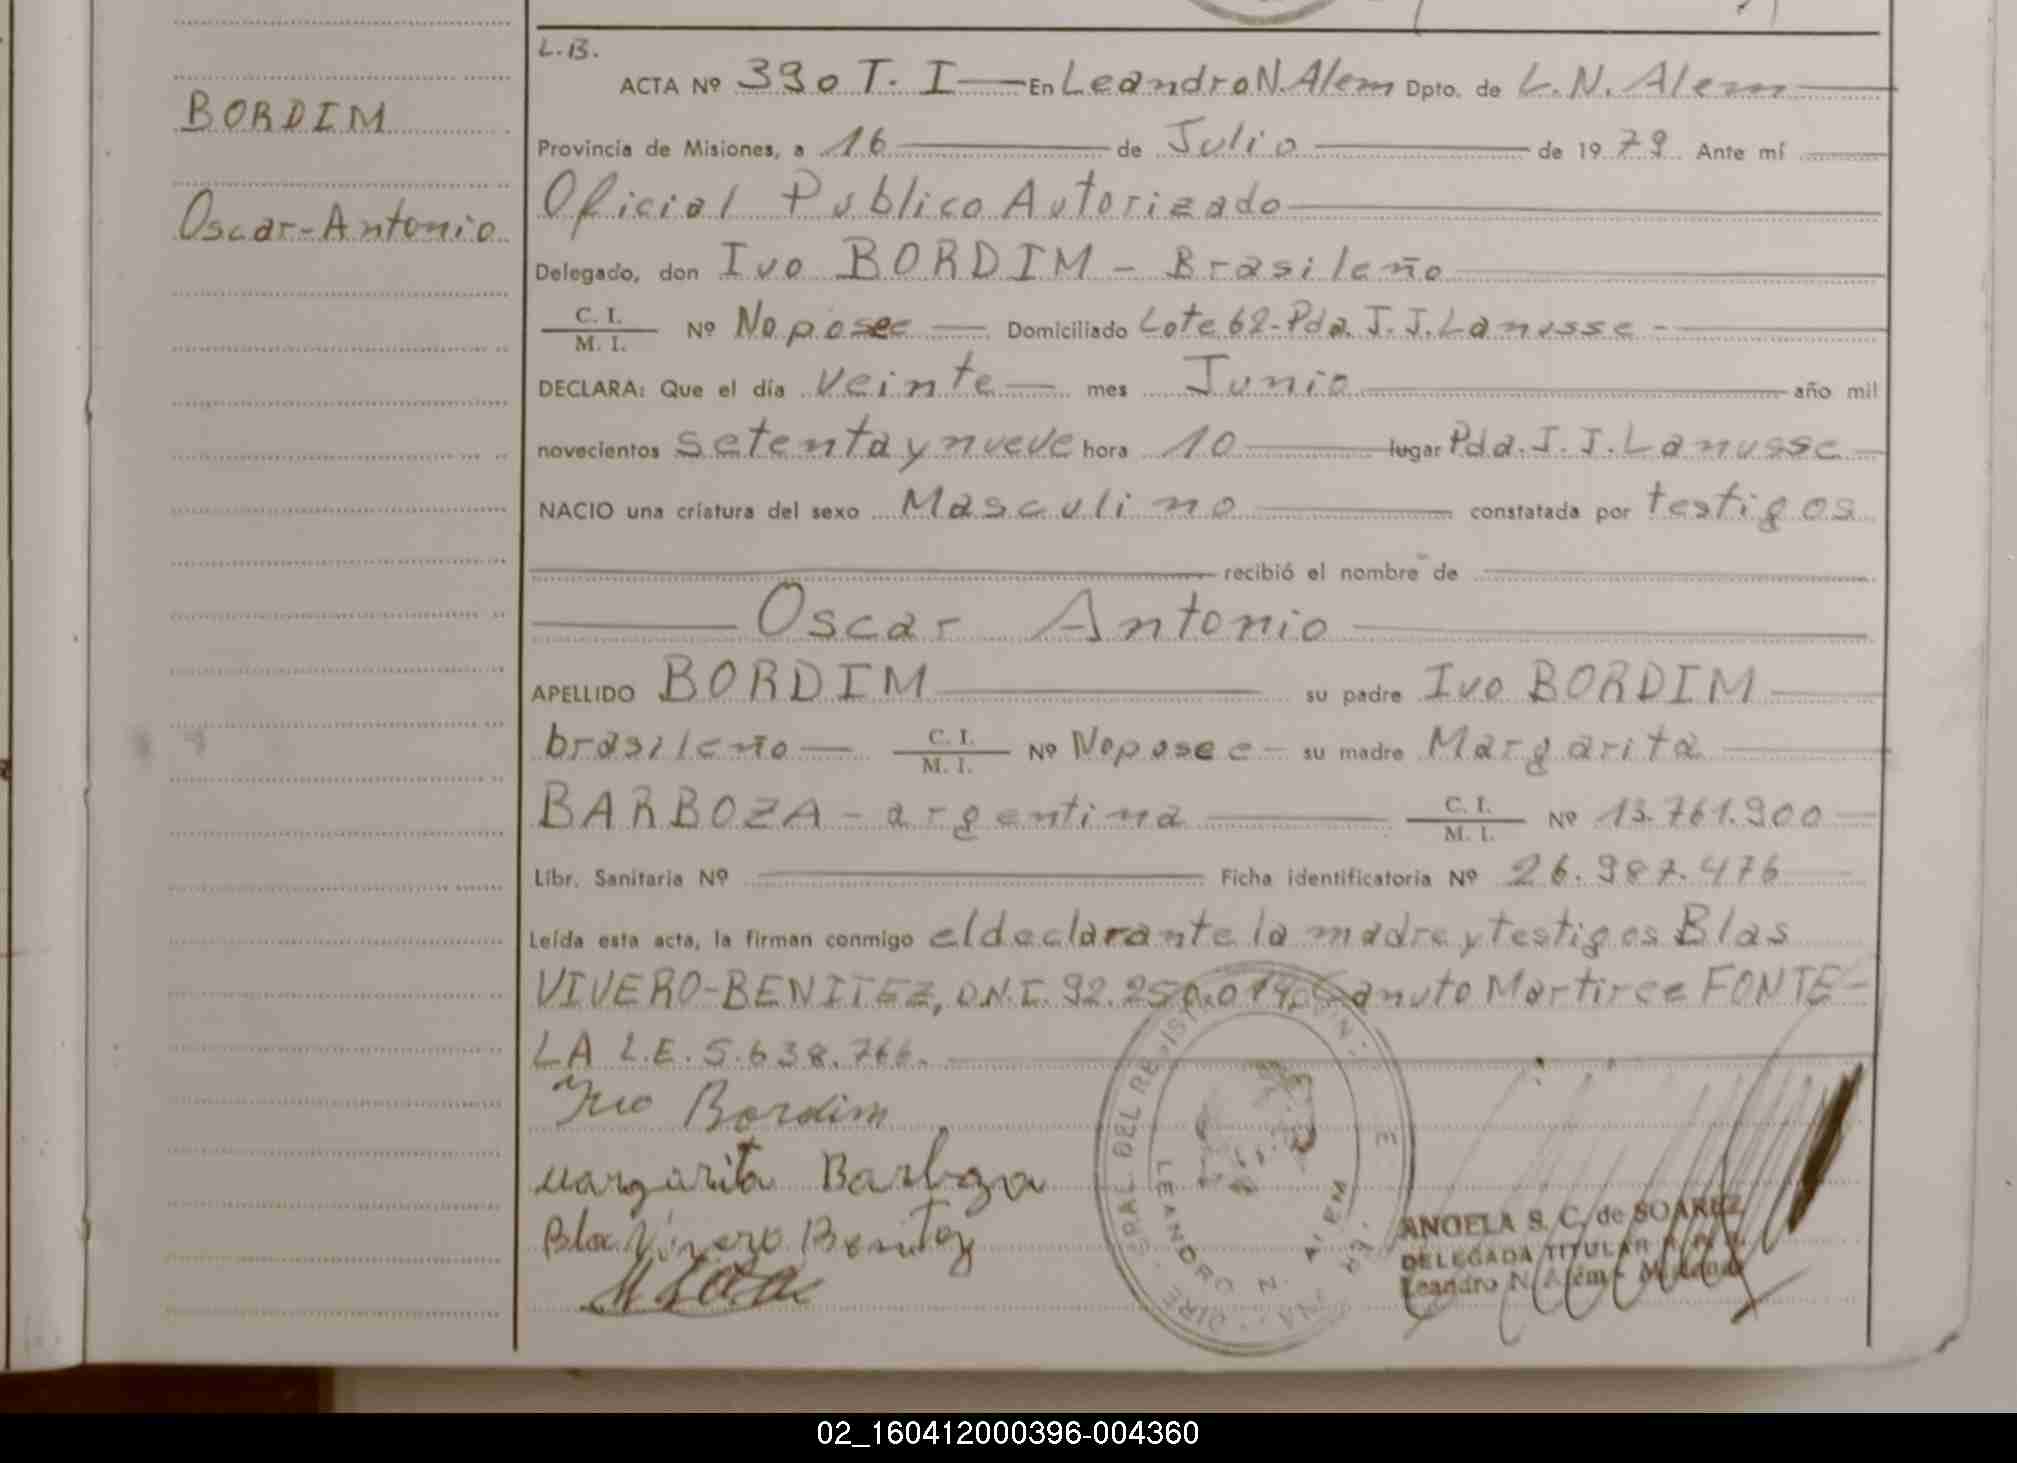 L.B.
ACTA Nº 390 T. I — En Leandro N. Alem Dpto. de L. N. Alem
BORDIM
Provincia de Misiones, a 16 de Julio de 1979 Ante mí
Oscar-Antonio
Oficial Publico Autorizado
Delegado, don Ivo BORDIM - Brasileño
C. I.
M. I. Nº No posee Domiciliado Lote 62-Pda. J. J. Lanusse -
DECLARA: Que el día veinte mes Junio año mil
novecientos setenta y nueve hora 10 lugar Pda. J. J. Lanusse
NACIO una criatura del sexo Masculino constatada por testigos
recibió el nombre de
Oscar Antonio
APELLIDO BORDIM su padre Ivo BORDIM
brasileño C. I.
M. I. Nº No posee - su madre Margarita
BARBOZA - argentina C. I.
M. I. Nº 13.761.900
Libr. Sanitaria Nº Ficha identificatoria Nº 26.987.476
Leída esta acta, la firman conmigo el declarante la madre y testigos Blas
VIVERO-BENITEZ, D.N.I. 92.250.019, Canuto Martires FONTE-
LA L.E. 5.638.766.
Ivo Bordim
Margarita Barboza
Blas Vivero Benitez
LEANDRO N. ALEM
ANGELA S. C. de SOAREZ
DELEGADA TITULAR
Leandro N. Alem - Misiones
02_160412000396-004360